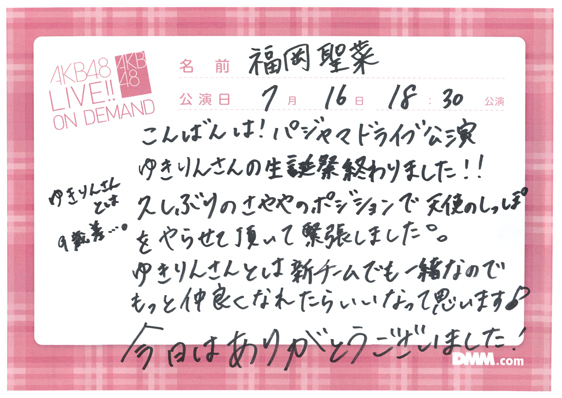 AKB48
LIVE!!
ON DEMAND
AKB
48
名前 福岡聖菜
公演日 7月16日 18:30公演
こんばんは!パジャマドライブ公演
ゆきりんさんの生誕祭終わりました!!
久しぶりのさややのポジションで天使のしっぽ
をやらせて頂いて緊張しました。
ゆきりんさんとは新チームでも一緒なので
もっと仲良くなれたらいいなって思います♪
今日はありがとうございました!
ゆきりんさん
とは
9歳差…。
DMM.com